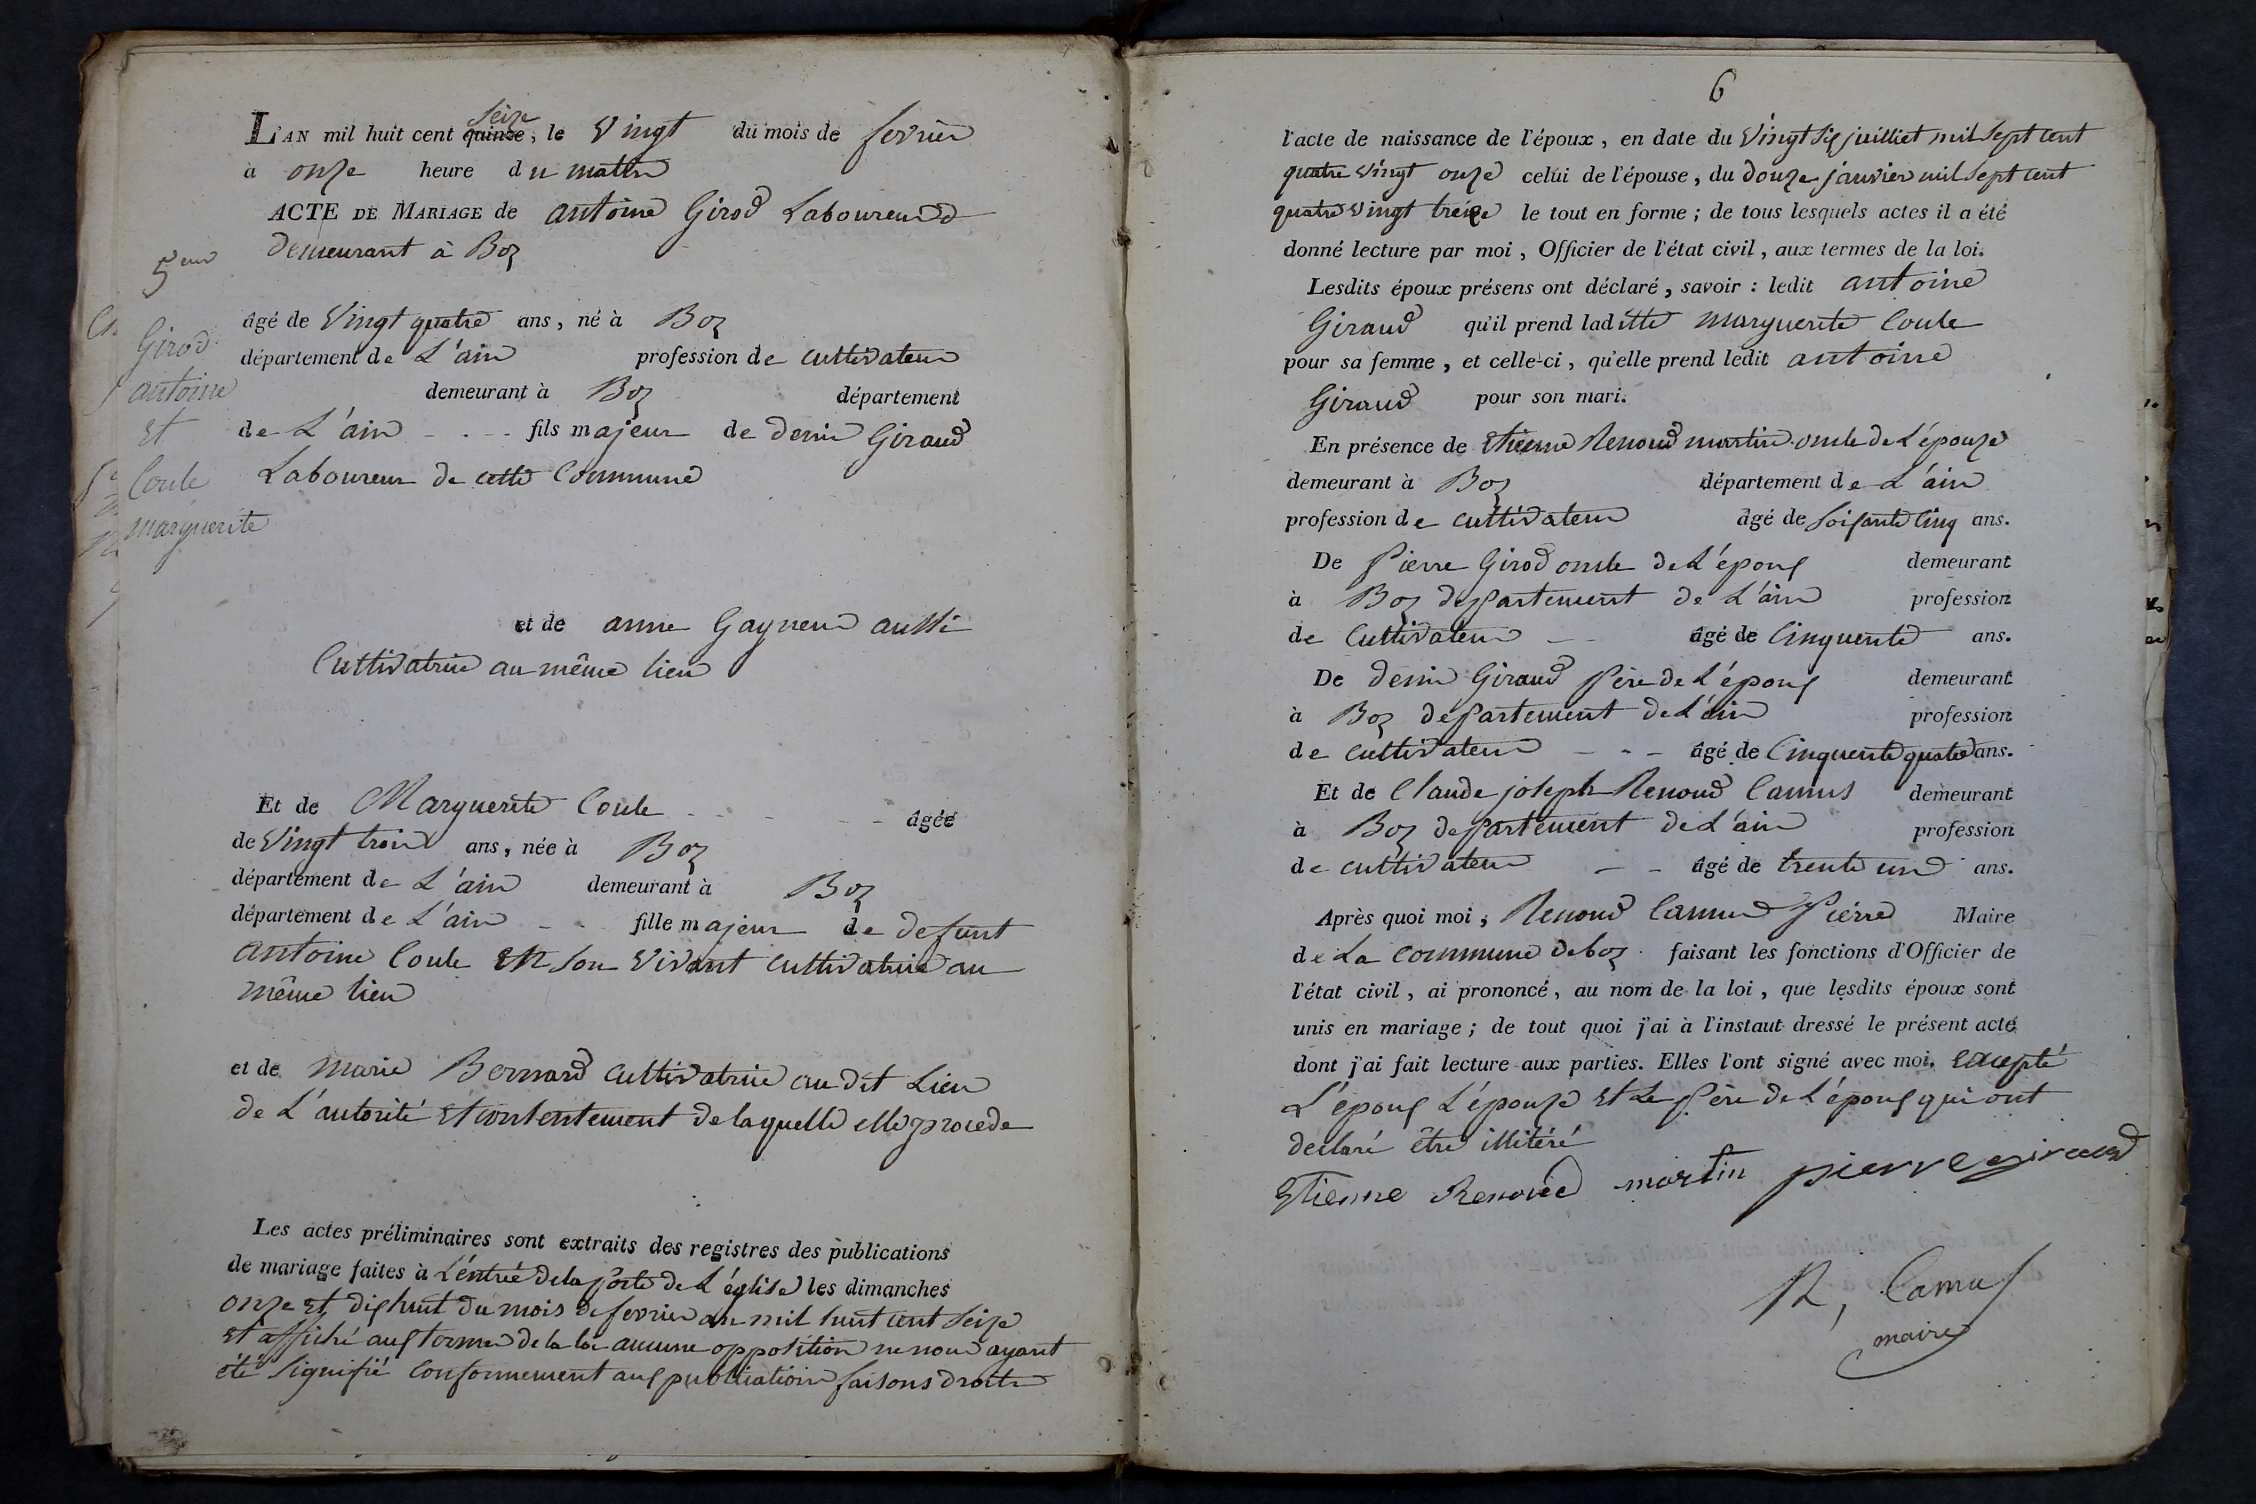 L'AN mil huit cent quinze seize, le Vingt du mois de fevrier
à onze heure du matin
ACTE DE MARIAGE de antoine Girod Laboureur
demeurant à Boz
5eme
Girod
antoine
et
Coule
marguerite
âgé de Vingt quatre ans, né à Boz
département de L'ain profession de cultivateur
demeurant à Boz département
de L'ain - . - - fils majeur de denis Giraud
Laboureur de cette Commune
et de anne Gagneur aussi
Cultivatrice au même lieu
Et de Marguerite Coule - - - - - âgée
de Vingt trois ans, née à Boz
département de L'ain demeurant à Boz
département de L'ain - - fille majeur de defunt
antoine Coule En son Vivant cultivatrice au
même lieu
et de marie Bernard cultivatrice au dit Lieu
de L'autorité et consentement de laquelle elle procede
Les actes préliminaires sont extraits des registres des publications
de mariage faites à L'éntrée de la porte de L'église les dimanches
onze et dixhuit du mois de fevrier an mil huit cent seize
et affiché aux termes de la loi aucune opposition ne nous ayant
été signifié conformement aux publication faisons droite
6
l'acte de naissance de l'époux, en date du Vingt six juilliet mil sept cent
quatre Vingt onze celui de l'épouse, du douze janvier mil sept cent
quatre Vingt treize le tout en forme; de tous lesquels actes il a été
donné lecture par moi, Officier de l'état civil, aux termes de la loi.
Lesdits époux présens ont déclaré, savoir : ledit antoine
Giraud qu'il prend laditte marguerite Coule
pour sa femme, et celle-ci, qu'elle prend ledit antoine
Giraud pour son mari.
En présence de etienne Renoud martin oncle de L'épouze
demeurant à Boz département de L'ain
profession de cultivateur âgé de soixante cinq ans.
De Pierre Girod oncle de L'époux demeurant
à Boz departement de L'ain profession
de Cultivateur - - âgé de Cinquente ans.
De denis Giraud Père de L'époux demeurant
à Boz departement de L'ain profession
de cultivateur - - - âgé de Cinquente quatre ans.
Et de Claude joseph Renoud Camus demeurant
à Boz departement de L'ain profession
de cultivateur - - âgé de trente un ans.
Après quoi moi, Renoud Camus Pierre Maire
de La commune de boz faisant les fonctions d'Officier de
l'état civil, ai prononcé, au nom de la loi, que lesdits époux sont
unis en mariage; de tout quoi j'ai à l'instaut dressé le présent acte
dont j'ai fait lecture aux parties. Elles l'ont signé avec moi. excepté
L'époux L'épouze et Le Père de L'époux qui ont
declaré être illitéré
Etienne Renoud martin pierre giraud
R, Camus
maire